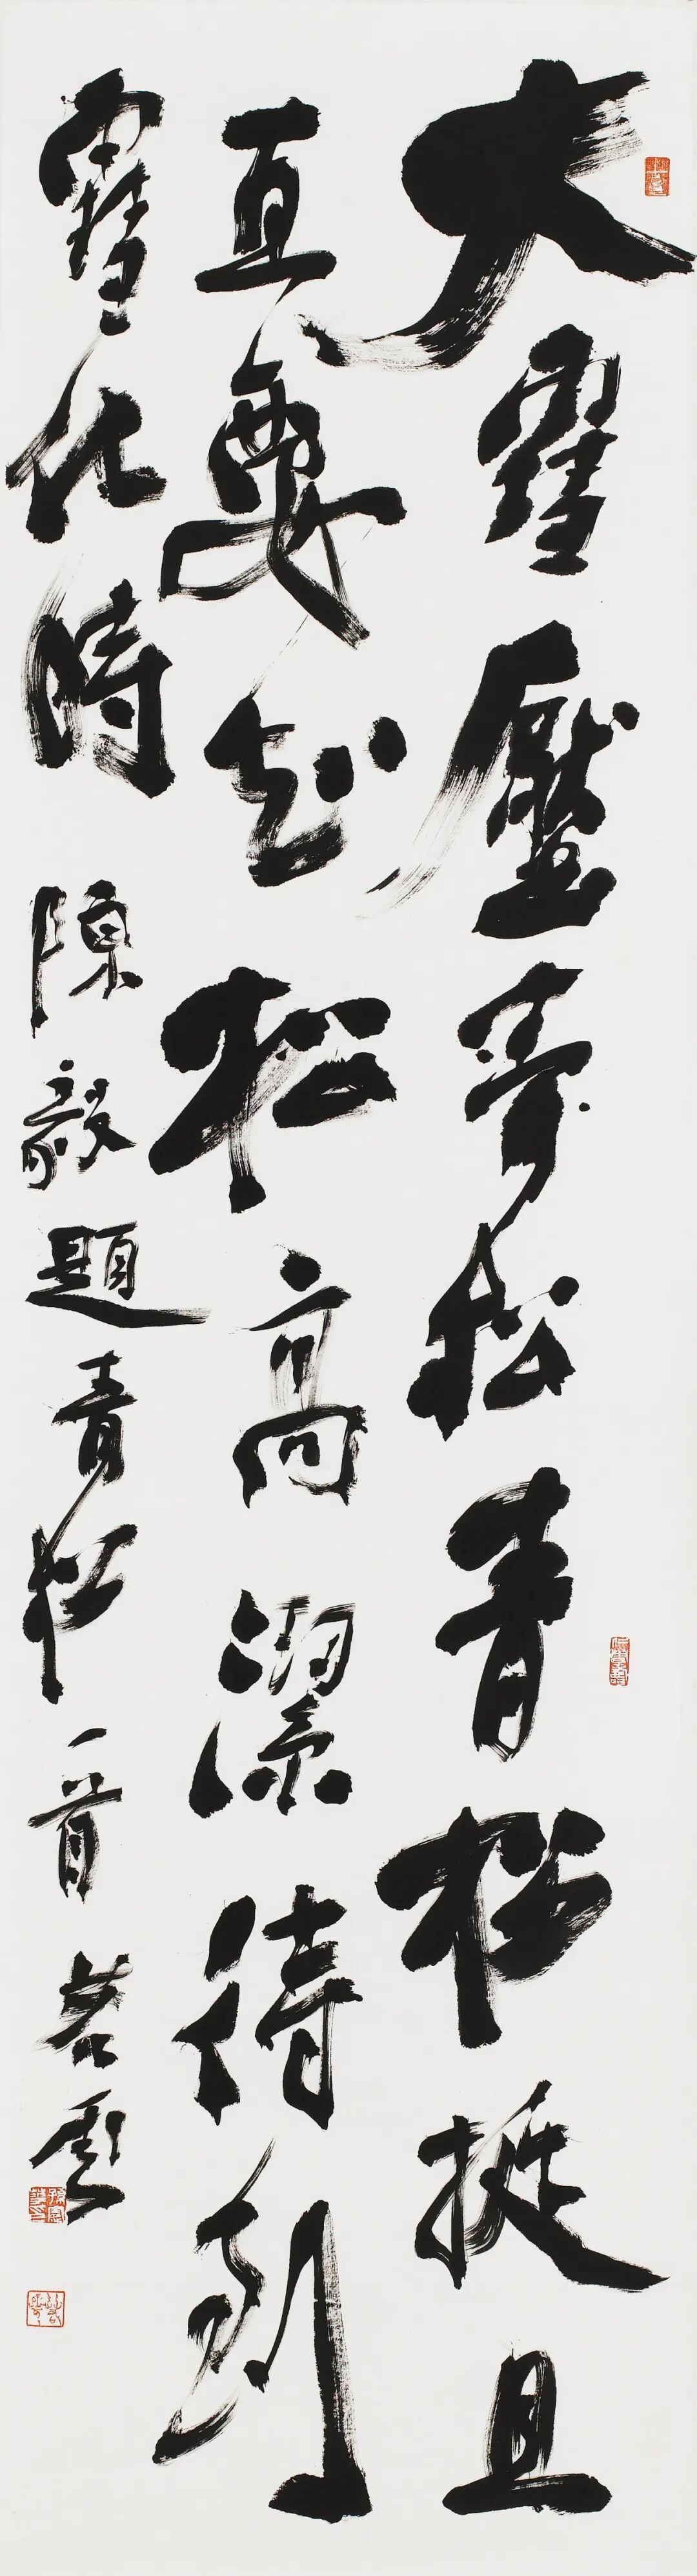 大雪壓青松青松挺且
直要知松高潔待到
雪化時 陳毅題青松一首 若雲